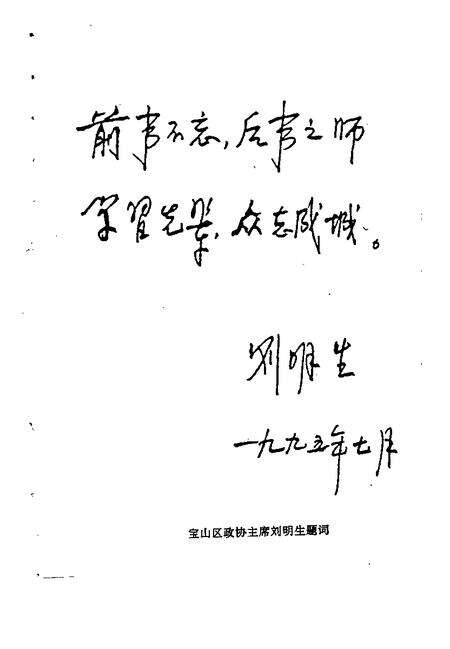 前事不忘,后事之师
学习先辈,众志成城。
刘明生
一九九五年七月
宝山区政协主席刘明生题词